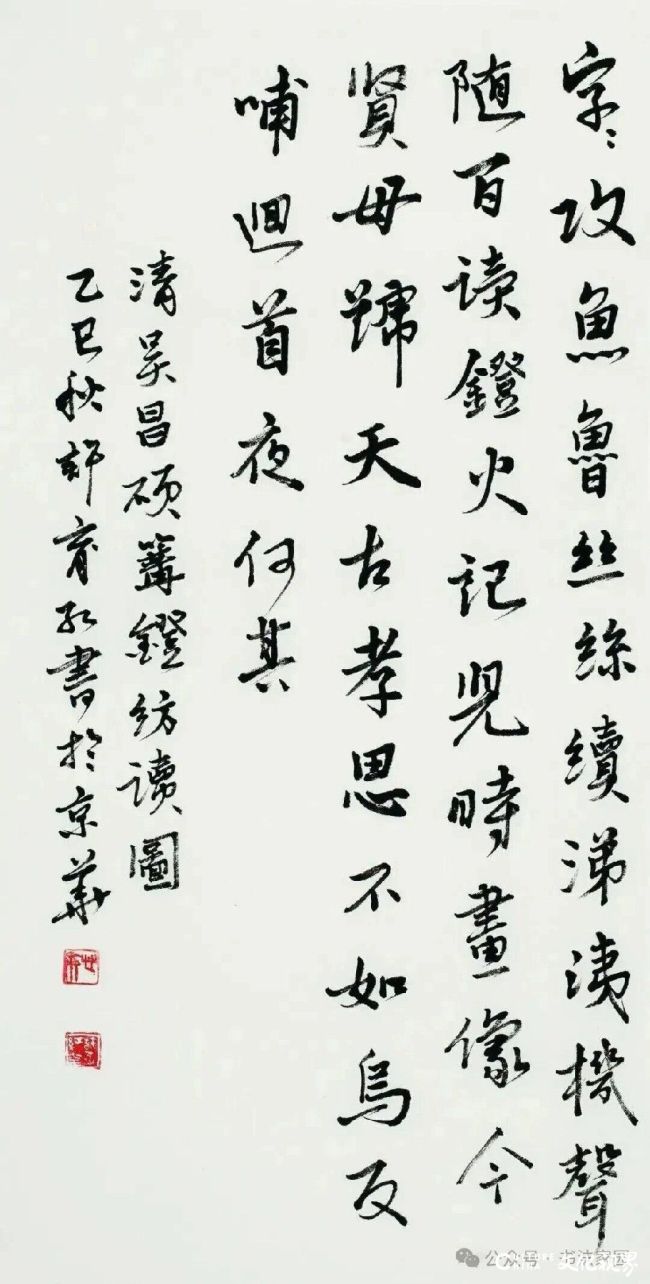 字〻攻魚魯丝絲續涕洟機聲
随百读鐙火記児時畫像今
賢母號天古孝思不如烏反
哺迴首夜何其
清吴昌硕篝鐙纺读圖
乙巳秋許育弘書於京華
公众号·书法家园